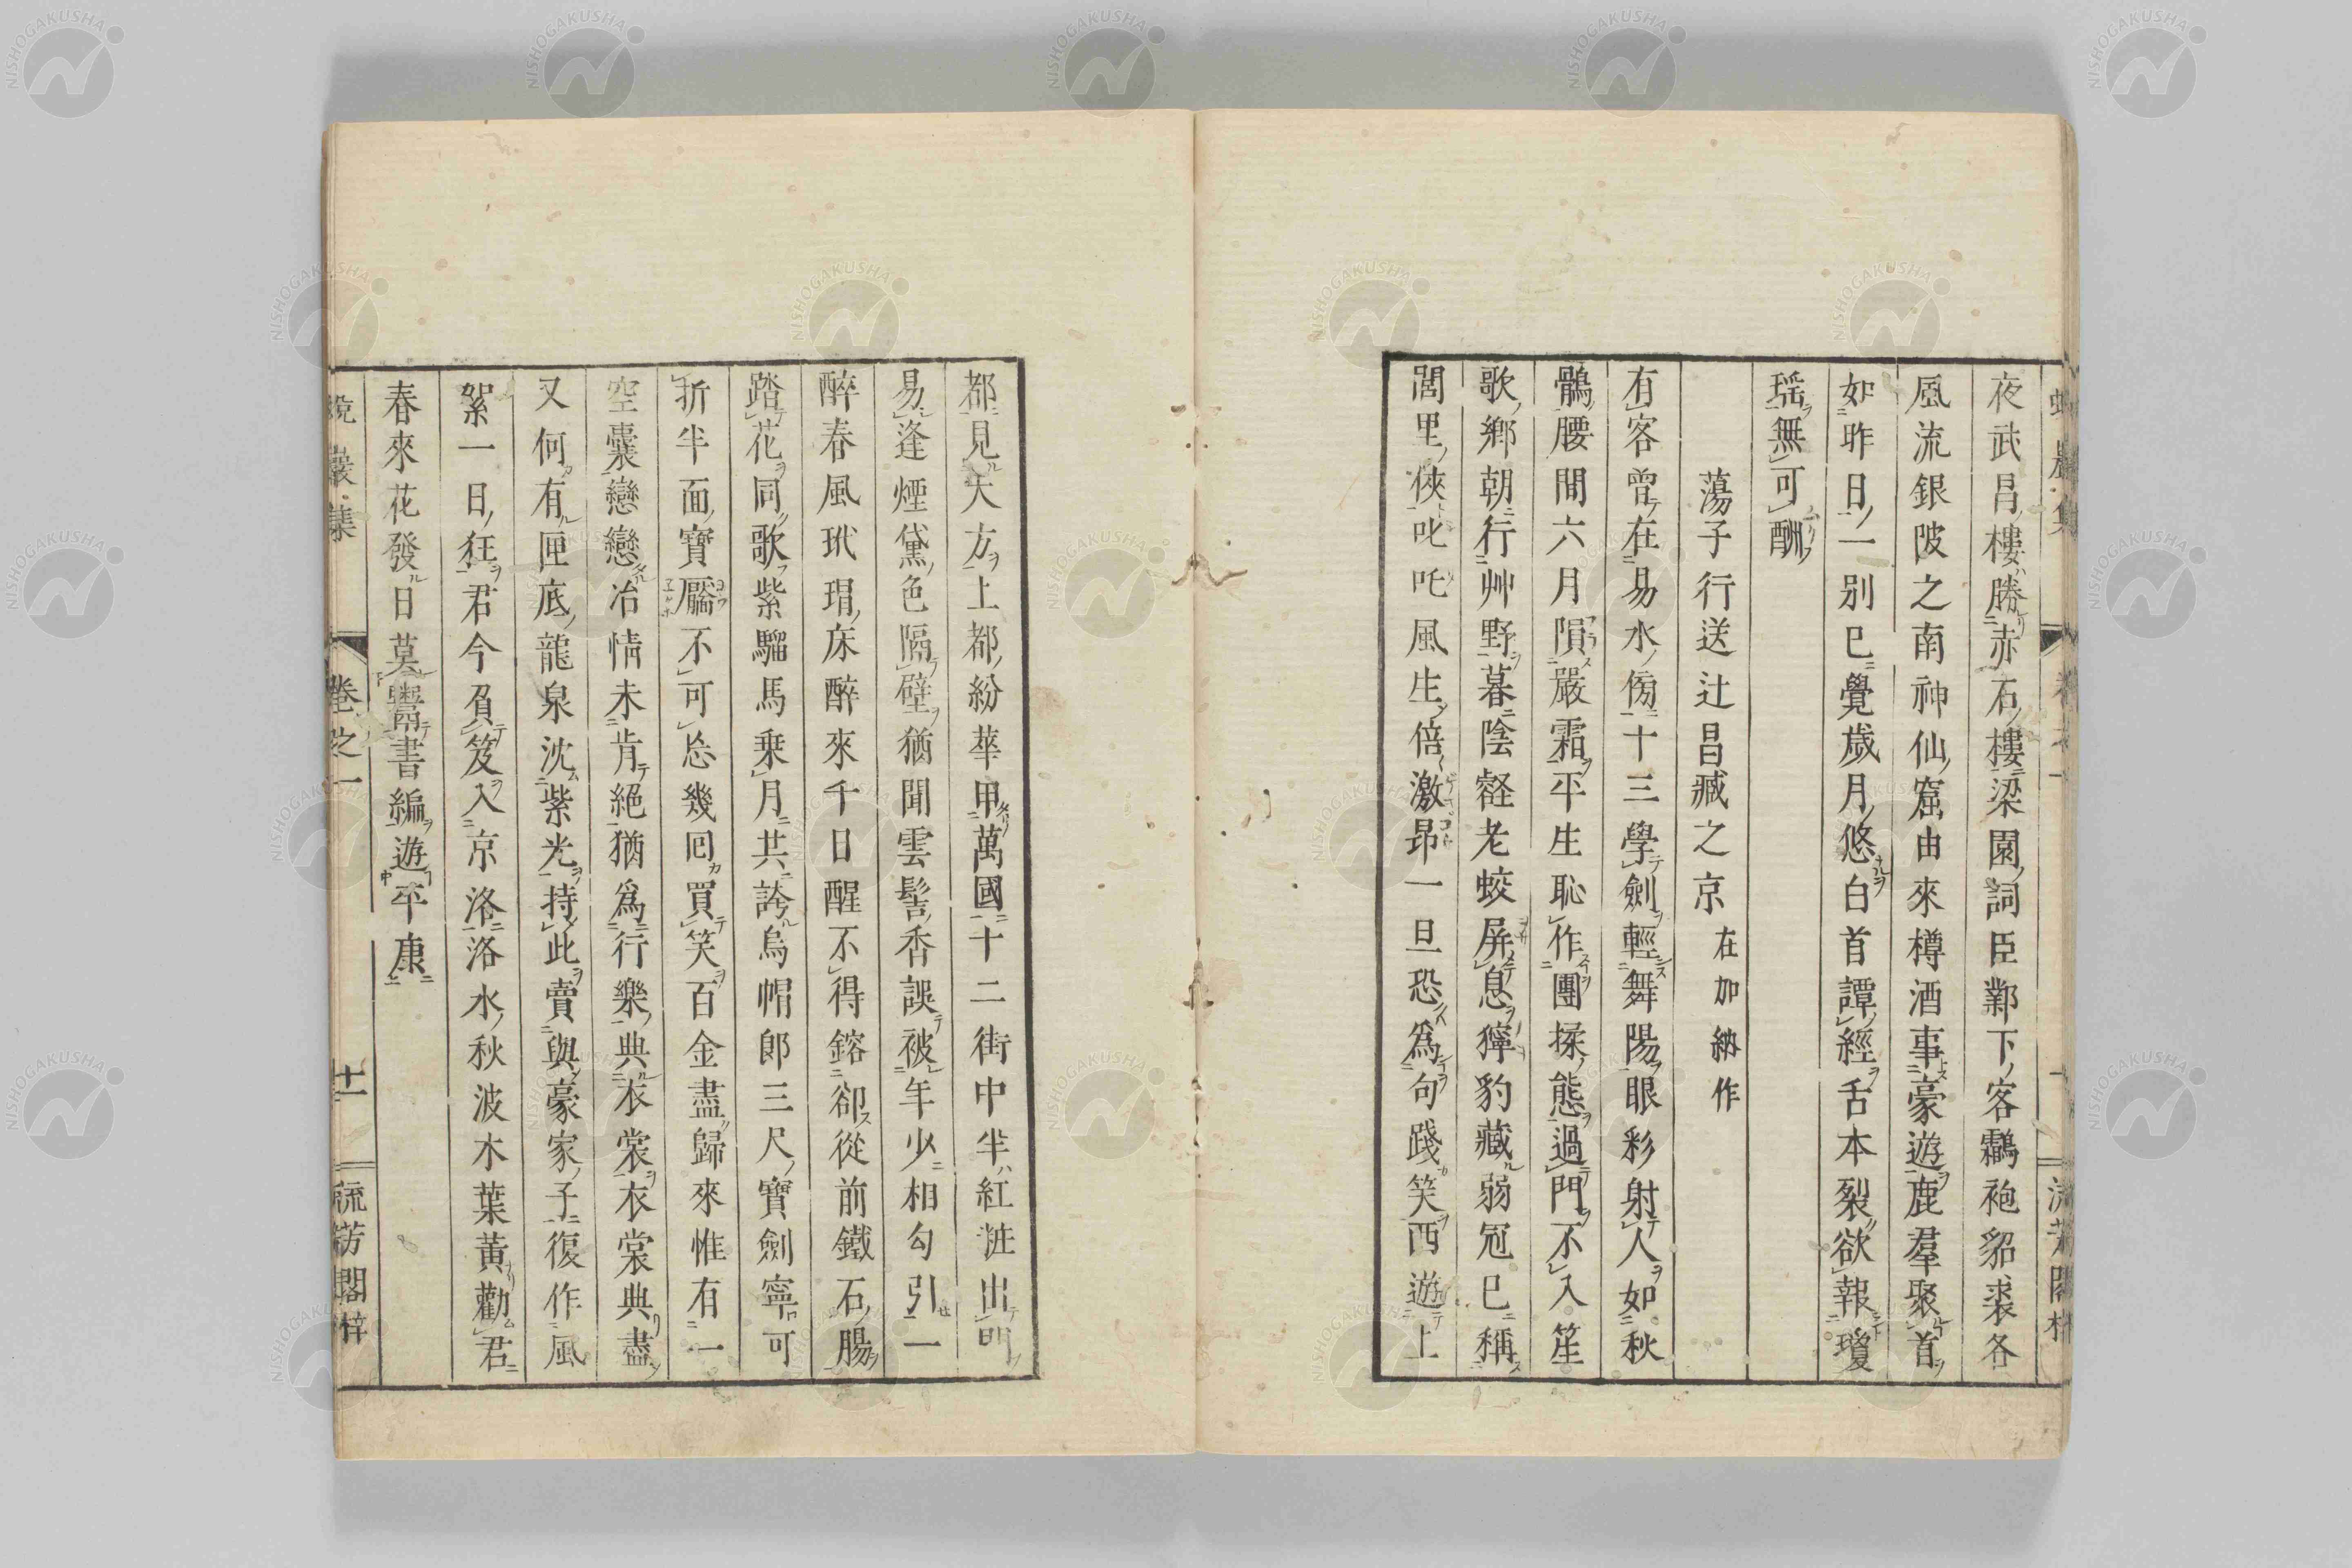 夜武昌樓勝赤石樓梁園詞臣鄴下客鸘袍貂裘各
風流銀陂之南神仙窟由來樽酒事豪遊鹿羣聚首
如昨日一別已覺歲月悠白首譚經舌本裂欲報瓊
瑶無可酬
蕩子行送辻昌臧之京 在加納作
有客曾在易水傍十三學劍輕舞陽眼彩射人如秋
鶻腰間六月隕嚴霜平生恥作團揉態過門不入笙
歌鄉朝行艸野暮陰壑老蛟屏息獰豹藏弱冠已稱
閭里俠叱吒風生倍激昂一旦恐爲句踐笑西遊上
都見大方上都紛華甲萬國十二街中半紅粧出門
易逢煙黛色隔壁猶聞雲髻香誤被年少相勾引一
醉春風玳瑁床醉來千日醒不得鎔卻從前鐵石腸
踏花同歌紫騮馬乗月共誇烏帽郎三尺寶劍寧可
折半面寶靨不可忘幾回買笑百金盡歸來惟有一
空囊戀戀冶情未肯絕猶爲行樂典衣裳衣裳典盡
又何有匣底龍泉沈紫光持此賣與豪家子復作風
絮一日狂君今負笈入京洛洛水秋波木葉黃勸君
春來花發日莫鬻書編遊平康
蛻巖集 卷之一 十一 流芳閣梓